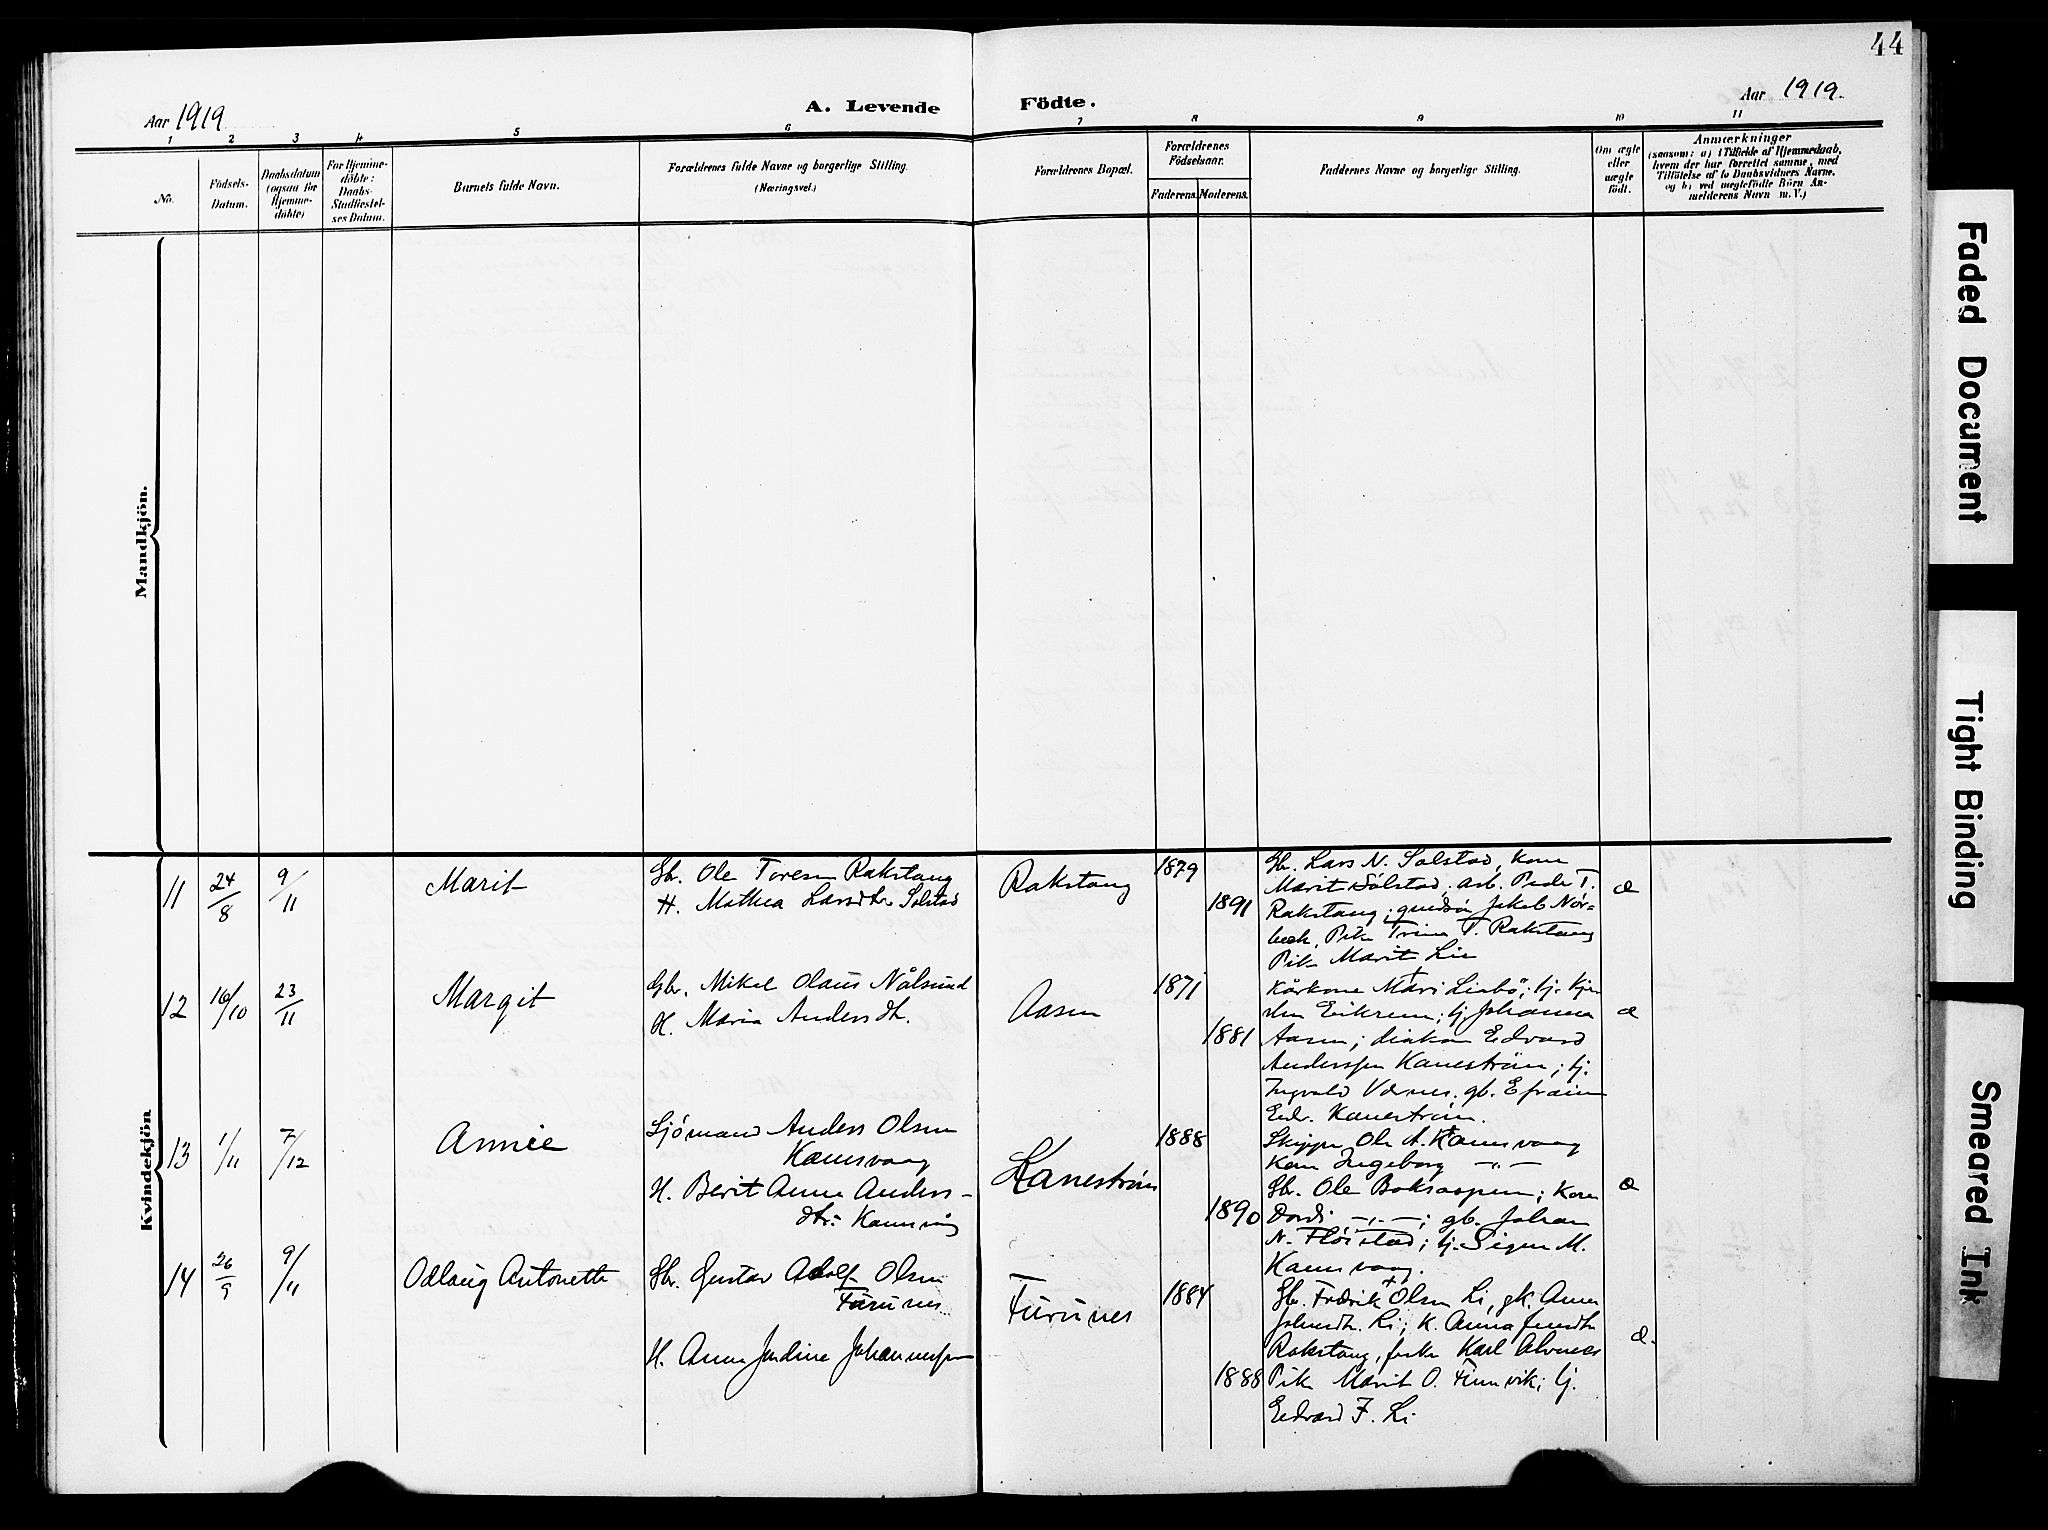 44
Aar 1919
A. Levende Födte.
Aar 1919.
1 2 3 4 5 6 7 8 9 10 11
No.
Födsels-
Datum.
Daabsdatum
(ogsaa for
Hjemme-
döbte)
For Hjemme-
döbte:
Daabs-
Stadfæstel-
ses Datum.
Barnets fulde Navn.
Forældrenes fulde Navne og borgerlige Stilling.
(Næringsvei.)
Forældrenes Bopæl.
Forældrenes
Födselsaar.
Faderens. Moderens.
Faddernes Navne og borgerlige Stilling.
Om ægte
eller
uægte
födt.
Anmærkninger
(saasom: a) i Tilfælde af Hjemmedaab,
hvem der har forrettet samme, med
Tilföielse af to Daabsvidners Navne,
og b) ved uægtefödte Börn An-
melderens Navn m. V.)
Mandkjön.
Kvindekjön
11
24/8
9/11
Marit
Gbr. Ole Toresen Rakstang
H. Mathea Larsdtr Solstad
Rakstang
1879
1891
Gbr. Lars N. Solstad, Kone
Marit Solstad, arb. Peder T.
Rakstang; Jakob Nor-
beck, Pike Trina T. Rakstang
Pike Marit Lie
æ
12
16/10
23/11
Margit
Gbr. Mikal Olaus Nålsund
H. Maria Andersdtr.
Aasen
1871
1881
Kårkone Mari Liabö; tj.
Eikrem; tj. Johanna
Aasen; diakon Edvard
Anderssen Kanestrøm; tj.
Ingvald Værnes, gb. Efraim
Edv. Kanestrøm.
æ
13
1/11
7/12
Annie
Sjómand Anders Olsen
Karnsvaag
H. Berit Anna Anders-
dtr.
Kanestrøm
1888
1890
Skipper Ole A. Karnsvaag
Kone Ingeborg -"-
Gbr. Ole Boksaspen; Kone
Dordi -"-; gb. Johan
N. Fløistad; tj. Signe M.
Karnsvaag.
æ
14
26/9
9/11
Odlaug Antonette
Gbr. Gustav Adolf Olsen
Furunes
H. Anna Jendine Johannessen
Furunes
1884
1888
Gbr. Fredrik Olsen Li, gk. Anne
Li; K. Anna
Rakstang, Karl Alvnes
Pike Marit O. Finnvik; tj.
Edvard F. Li
æ.
Faded Document
Tight Binding
Smeared Ink